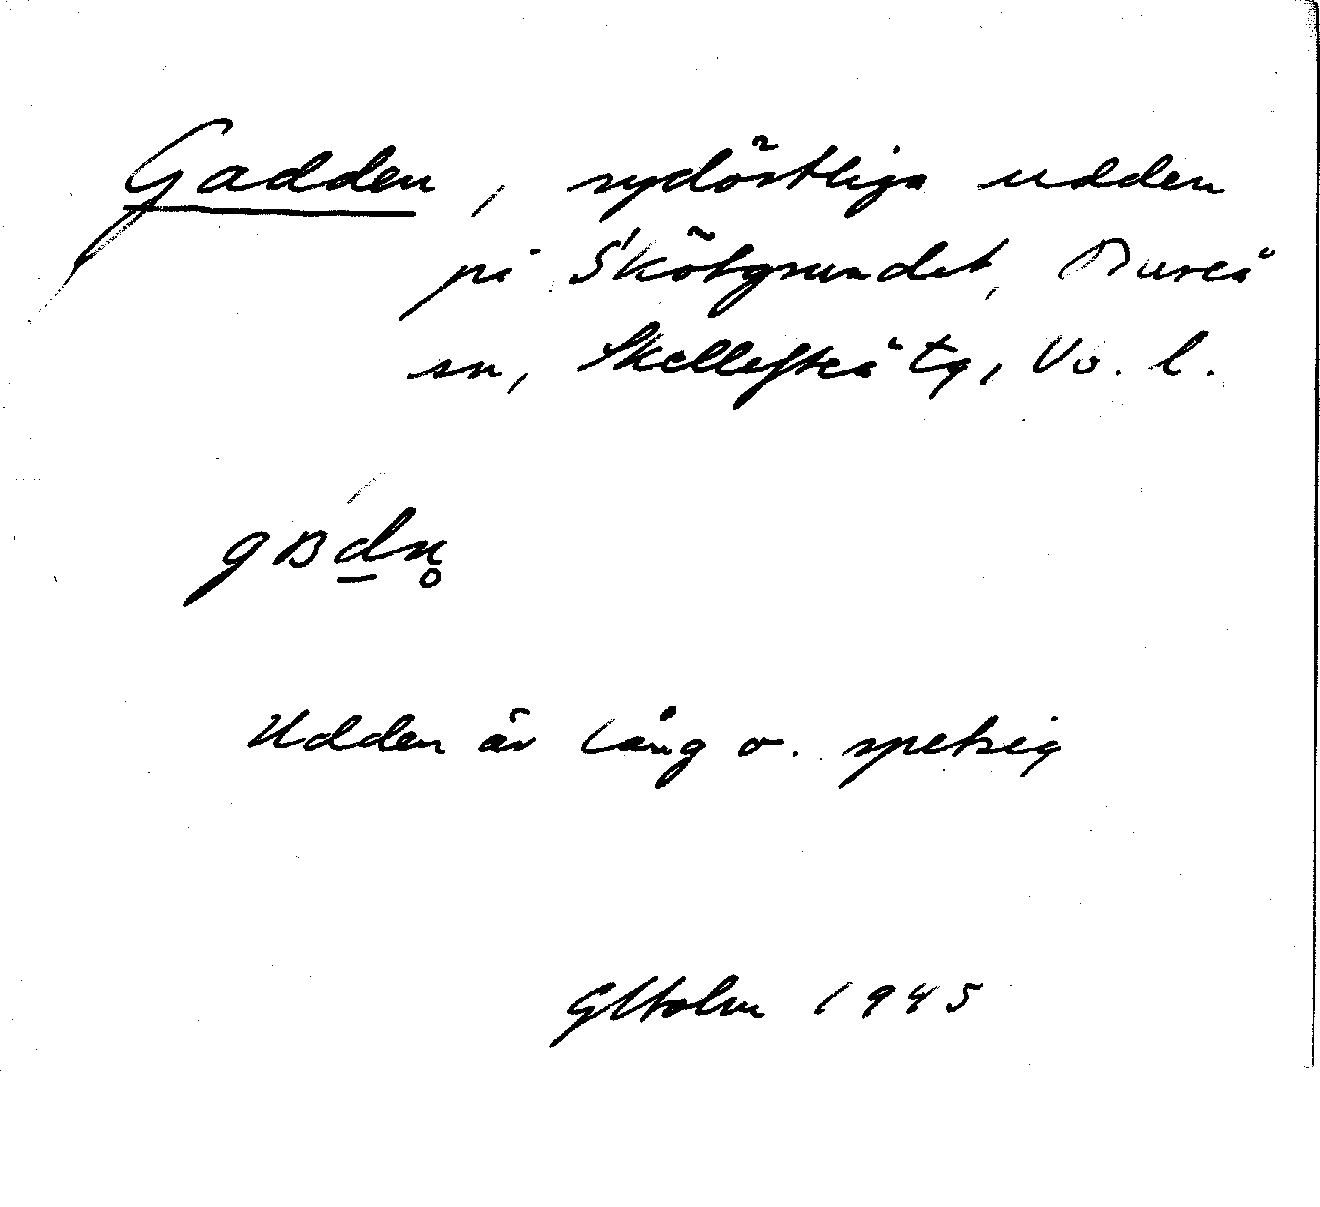 Gadden, sydöstliga udden
på Skötgrundet, Bureå
sn, Skellefteå tg, Vb. l.
gBdn̥
Udden är lång o. spetsig
GHolm 1945